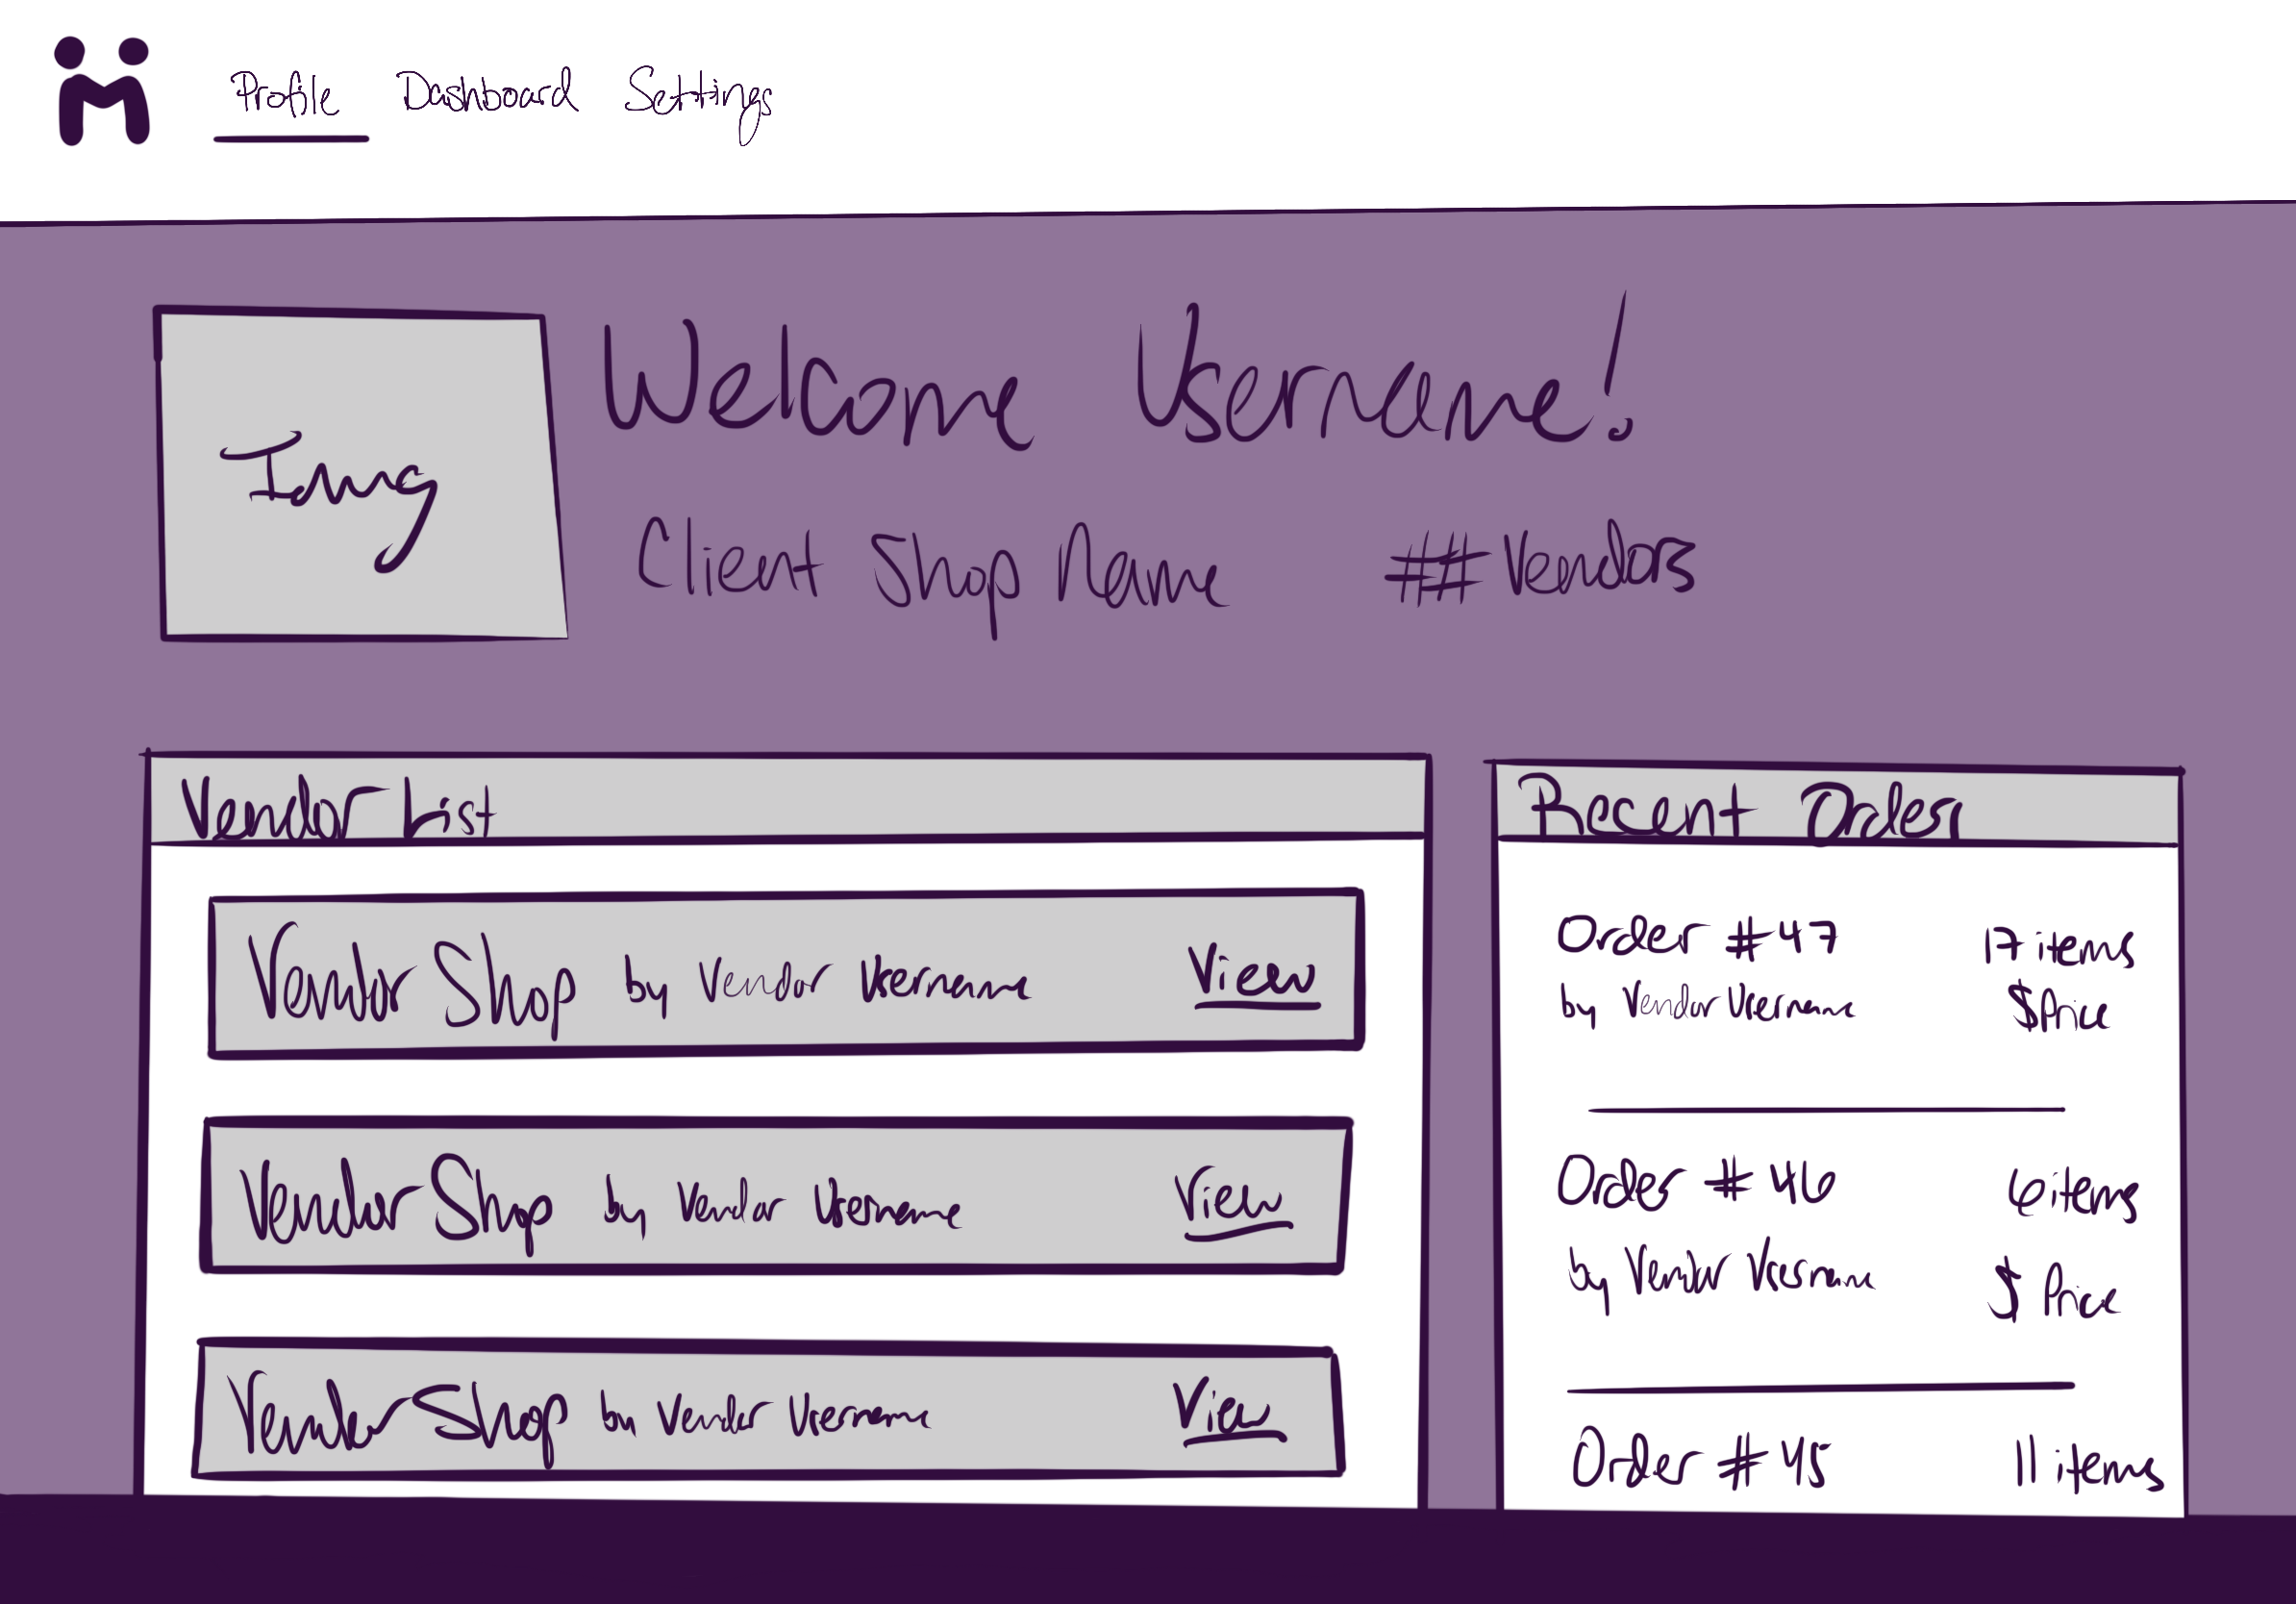 Profile Dashboard Settings
Welcome Username!
Img
Client Shop Name ## Vendors
Vendor List
Vendor Shop by Vendor Username View
Vendor Shop by Vendor Username View
Vendor Shop by Vendor Username View
Recent Order
Order #47 17 items
by Vendor Username $Price
Order #46 6 items
by Vendor Username $ Price
Order #45 11 items